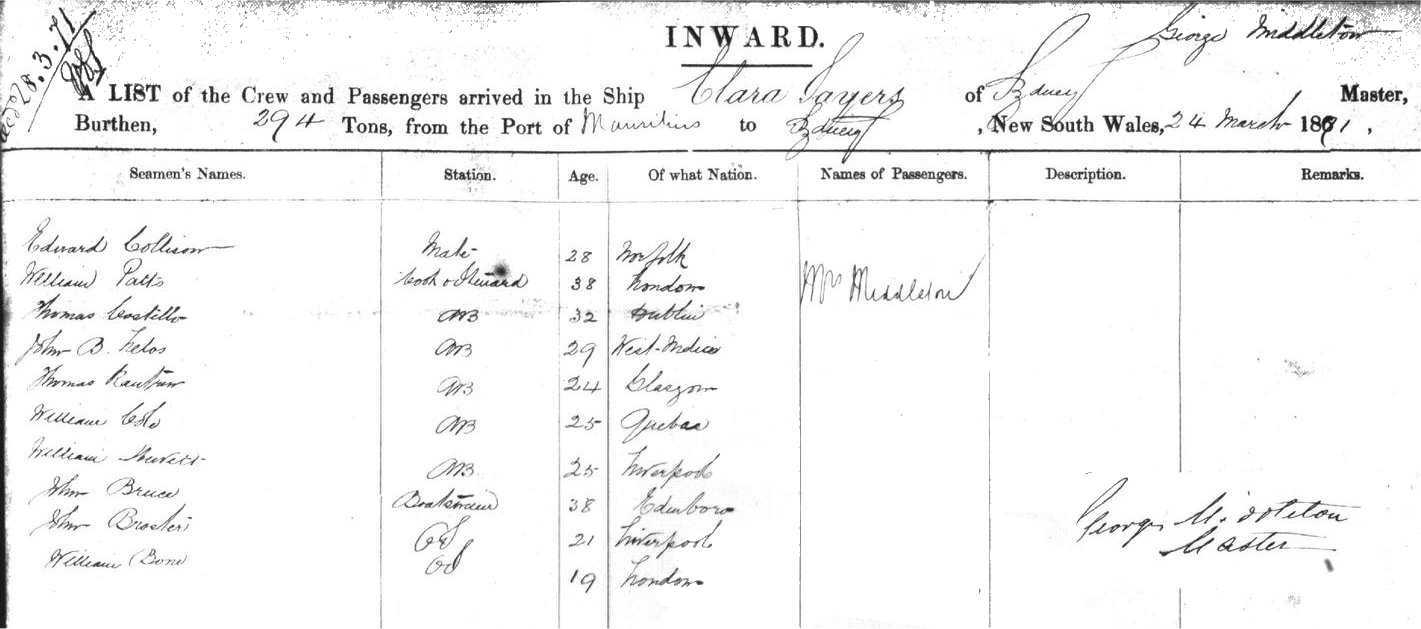 28.3.71
INWARD.
George Middleton
A LIST of the Crew and Passengers arrived in the Ship Clara Sayers of Sydney Master,
Burthen, 294 Tons, from the Port of Mauritius to Sydney, New South Wales, 24 March 1871,
Seamen's Names. Station. Age. Of what Nation. Names of Passengers. Description. Remarks.
Edward Collison Mate 28 Norfolk
William Patts Cook & Steward 38 London Mrs Middleton
Thomas Costillo AB 32 Dublin
John B. AB 29 West-Indies
Thomas AB 24 Glasgow
William AB 25 Quebac
William AB 25 Liverpool
John Bruce Boatswain 38 Edinboro
John Broster OS 21 Liverpool
William Bone OS 19 London
George Middleton
Master